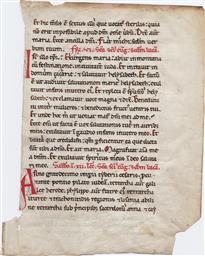 Et hic mensis est sextus illi que vocat sterilis: quia
non erit impossibile apud dm omne verbum. Dixit aut
maria. Ecce ancilla dni. Fiat michi scdm ver
bum tuum. scdm lucā
In illo tp̄r. Exurgens maria abiit in montana
cum festinatione in civitatem iuda. Et intravit in
domum zacharie & salutavit helysabeth. Et
factum est ut audivit salutationem marie helysabeth: ex
ultavit infans in utero ei. Et repleta est spū sco
helysabeth & exclamavit voce magna & dixit. Benedicta
tu inter mulieres & benedictus fructus ventris tui.
Et unde hoc michi ut veniat mater dni mei ad me.
Ecce enim ut facta est vox salutationis tue in auribus
meis exultavit in gaudio infans in utero meo. Et
beata que credidisti qm perficientur ea que dicta
sunt tibi a dno. Et ait maria. Magnificat anima me
a dnm. Et exultavit spiritus meus in deo salutari
meo. scdm lucā
Anno quintodecimo imperii tyberii cesaris, pro
curante pontio pilato iudeam. tetrarcha aut gali
lee herode, philippo aut fratre ei tetrarcha
ituree & traconitidis regionis & lisania abili
ne tetrarcha sub principibus sacerdotum anna & cay